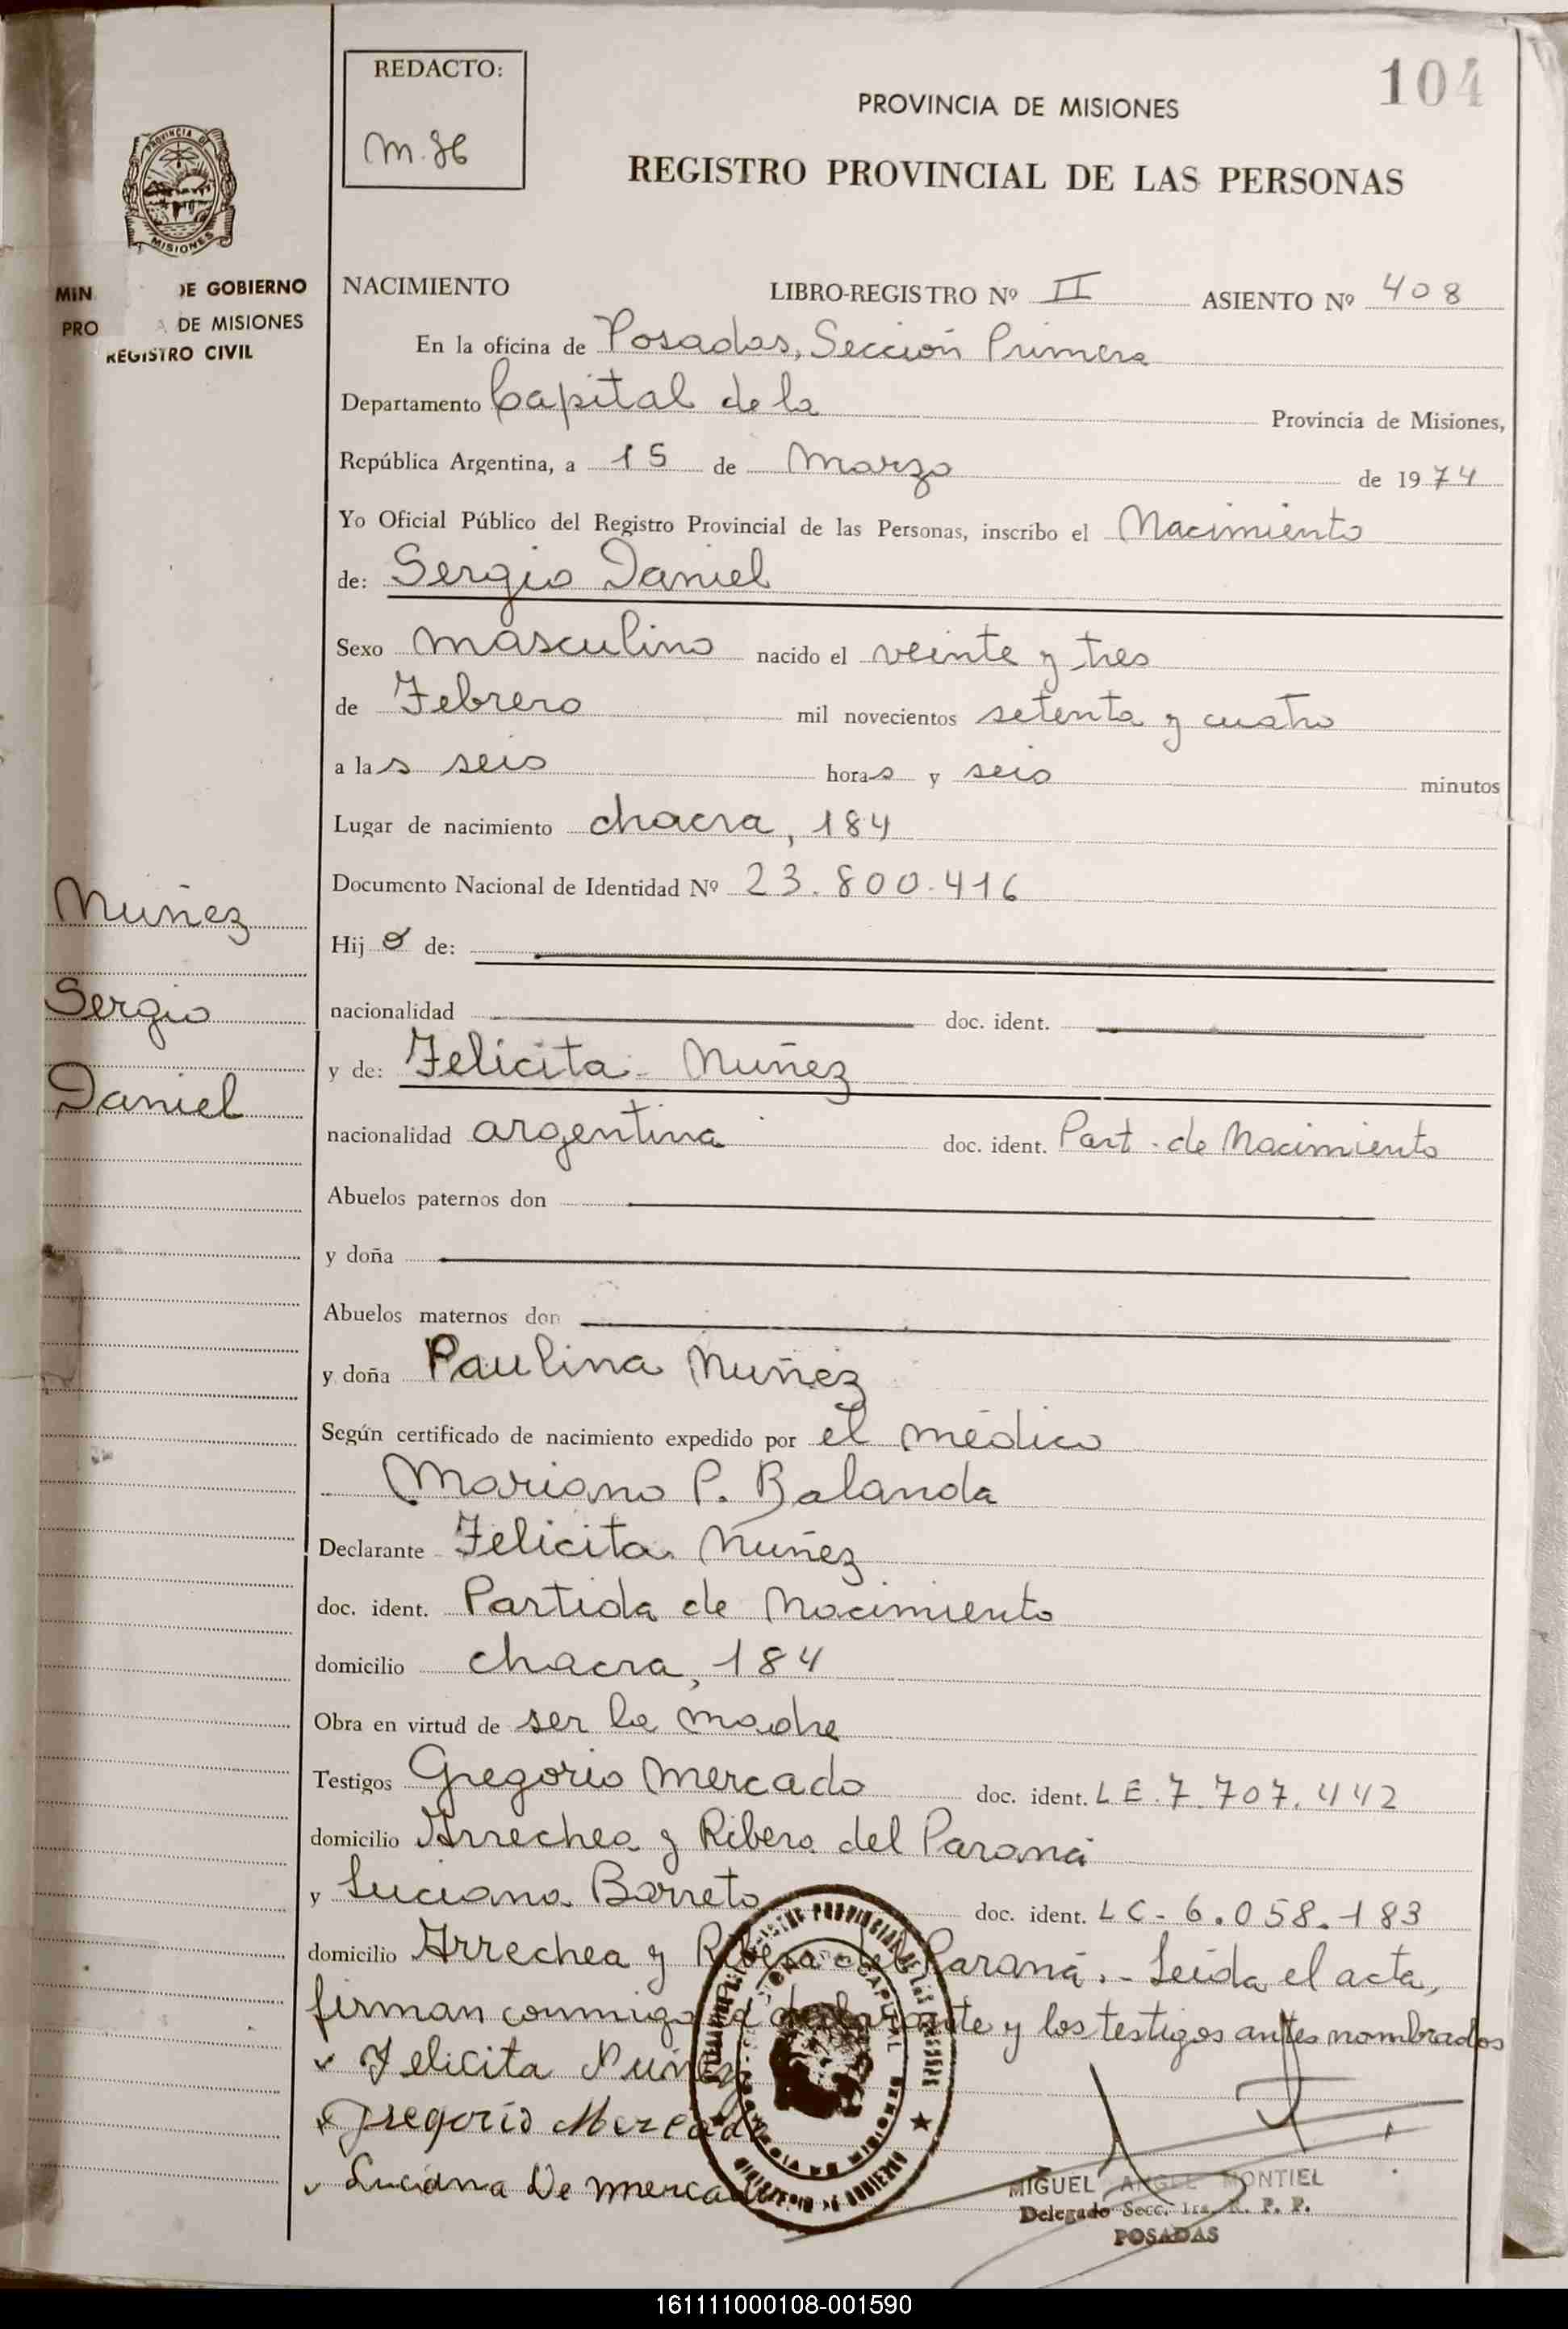 REDACTO:
M.
104
PROVINCIA DE MISIONES
REGISTRO PROVINCIAL DE LAS PERSONAS
PROVINCIA DE
MISIONES
MIN DE GOBIERNO
PRO A DE MISIONES
REGISTRO CIVIL
NACIMIENTO LIBRO-REGISTRO Nº II ASIENTO Nº 408
En la oficina de Posadas, Sección Primera
Departamento Capital de la Provincia de Misiones,
República Argentina, a 15 de Marzo de 1974
Yo Oficial Público del Registro Provincial de las Personas, inscribo el Nacimiento
de: Sergio Daniel
Sexo masculino nacido el veinte y tres
de Febrero mil novecientos setenta y cuatro
a las seis horas y seis minutos
Lugar de nacimiento chacra, 184
Documento Nacional de Identidad Nº 23.800.416
Muñez
Sergio
Daniel
Hijo de:
nacionalidad doc. ident.
y de: Felicita Nuñez
nacionalidad argentina doc. ident. Part. de Nacimiento
Abuelos paternos don
y doña
Abuelos maternos don
y doña Paulina Nuñez
Según certificado de nacimiento expedido por el médico
Mariano P. Balanda
Declarante Felicita Nuñez
doc. ident. Partida de Nacimiento
domicilio chacra, 184
Obra en virtud de ser la madre
Testigos Gregorio Mercado doc. ident. LE.7.707.442
domicilio Arrechea y Ribera del Paraná
y Luciana Barreto doc. ident. LC-6.058.183
domicilio Arrechea y Ribera del Paraná.- Leída el acta,
firman conmigo la declarante y los testigos antes nombrados
Felicita Nuñez
Gregorio Mercado
Luciana De mercado
MIGUEL ANGEL MONTIEL
Delegado Secc. 1ra. R. P. P.
POSADAS
161111000108-001590